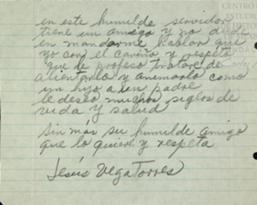 CENTRO
ESTUDI
en este humilde servidor
tiene un amigo y no dude
en mandarme hablar que
yo con el cariño y respeto
que le profeso trataré de
alientarlo y animarlo como
un hijo a un padre
le deseo muchos siglos de
vida y salud
sin más su humilde amigo
que lo quiere y respeta
Jesús Vega Torres